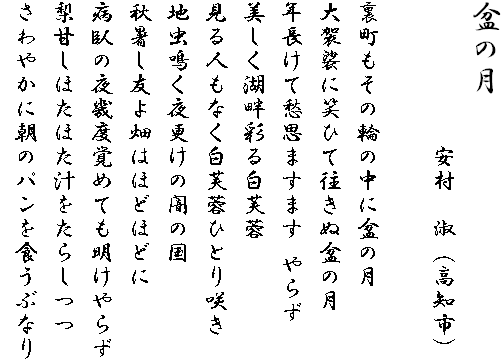 盆の月
安村 淑(高知市)
裏町もその輪の中に盆の月
大袈裟に笑ひて往きぬ盆の月
年長けて愁思ますます やらず
美しく湖畔彩る白芙蓉
見る人もなく白芙蓉ひとり咲き
地虫鳴く夜更けの闇の国
秋暑し友よ畑はほどほどに
病臥の夜幾度覚めても明けやらず
梨甘しほたほた汁をたらしつつ
さわやかに朝のパンを食うぶなり